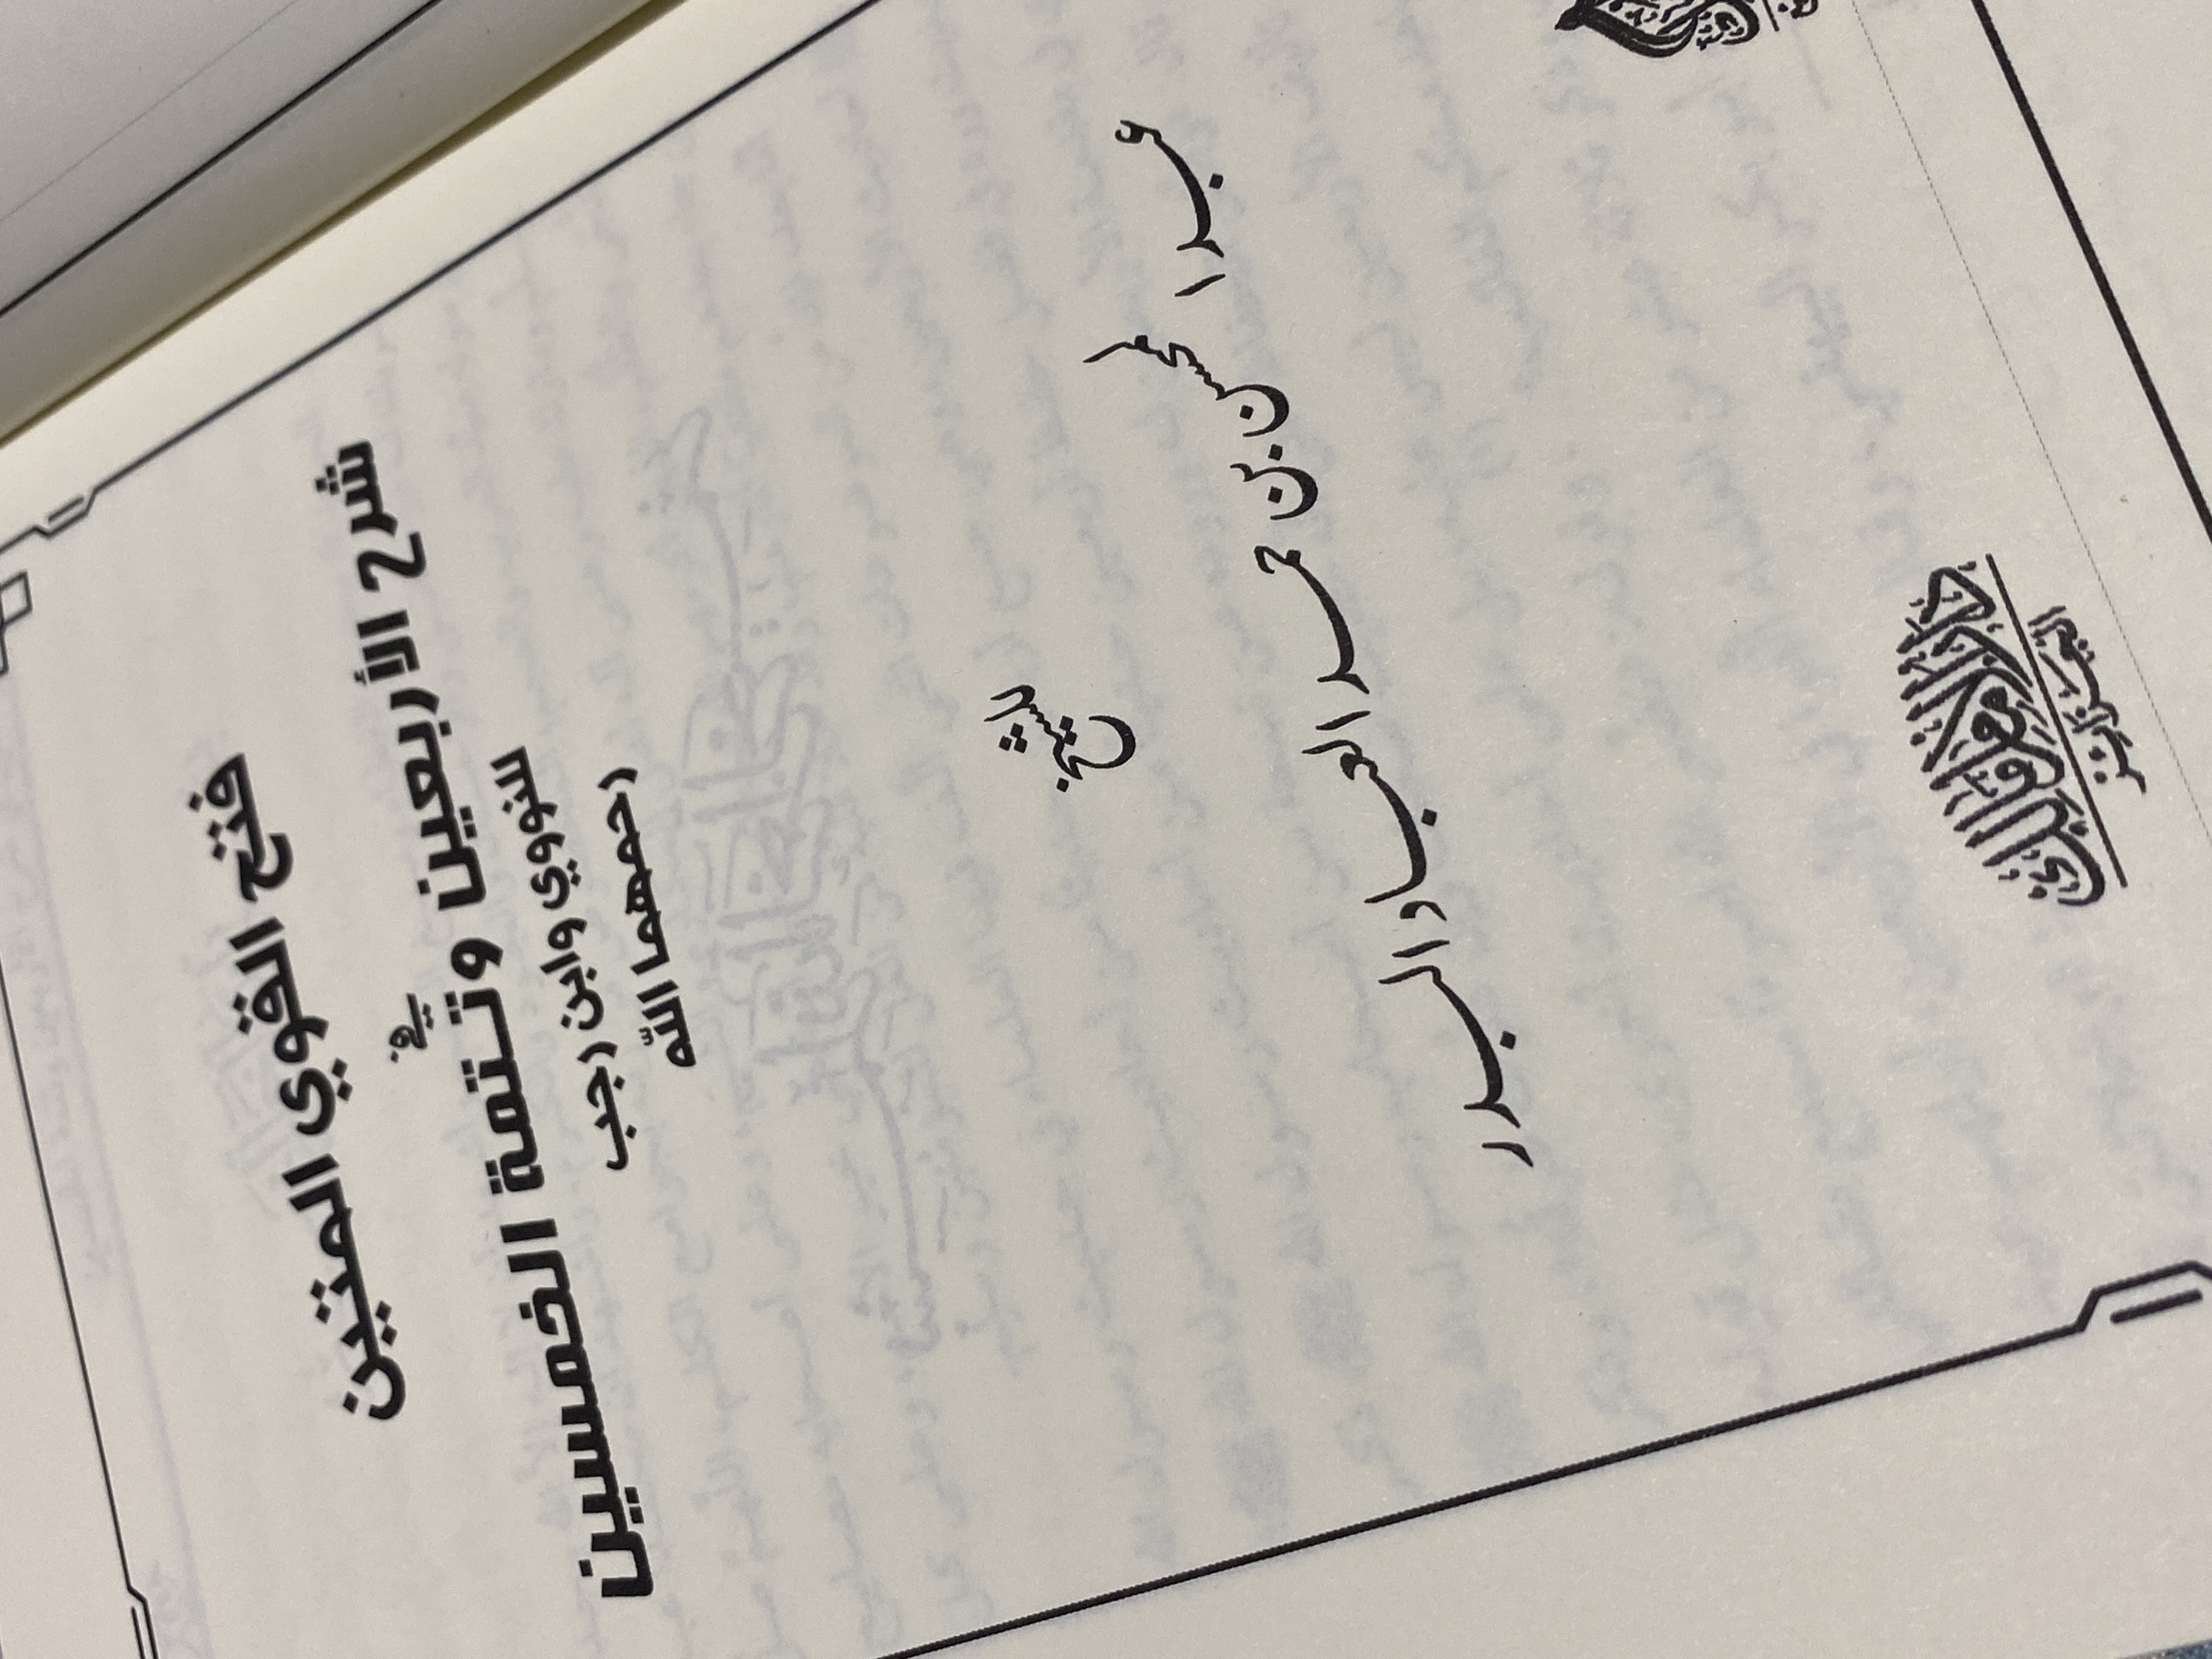 فتح القوي المتين
في
شرح الأربعين وتتمة الخمسين
للنووي وابن رجب
رحمهما الله
الشيخ
عبد المحسن بن حمد العباد البدر